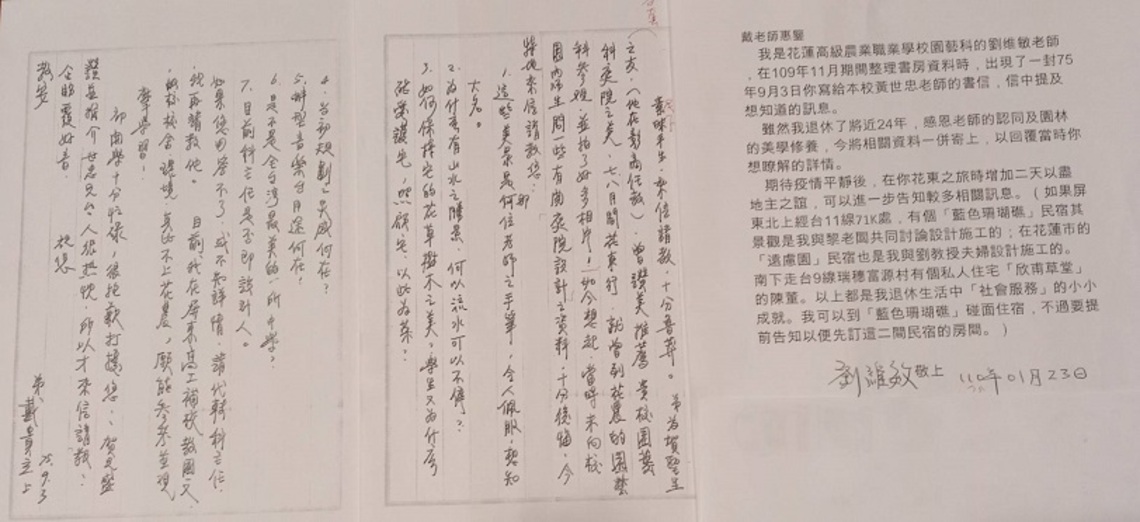 戴老師惠鑒
我是花蓮高級農業職業學校園藝科的劉維敏老師
，在109年11月期間整理書房資料時，出現了一封75
年9月3日你寫給本校黃世忠老師的書信，信中提及
想知道的訊息。
雖然我退休了將近24年，感恩老師的認同及園林
的美學修養，今將相關資料一併寄上，以回覆當時你
想瞭解的詳情。
期待疫情平靜後，在你花東之旅時增加二天以盡
地主之誼，可以進一步告知較多相關訊息。（如果屏
東北上經台11線71K處，有個「藍色珊瑚礁」民宿其
景觀是我與黎老闆共同討論設計施工的；在花蓮市的
「遠慮園」民宿也是我與劉教授夫婦設計施工的。
南下走台9線瑞穗富源村有個私人住宅「欣甫草堂」
的陳董。以上都是我退休生活中「社會服務」的小小
成就。我可以到「藍色珊瑚礁」碰面住宿，不過要提
前告知以便先訂這二間民宿的房間。）
劉維敏敬上 110年01月23日
素昧平生，來信請教，十分魯莽。弟為賀堅生
之友，（他在彰商任教）曾讚美推薦 貴校園藝
科庭院之美，七八月間花東行，就曾到花農的園藝
科參觀，並拍了好多相片！如今想起，當時未向校
園內師生問一些有關庭院設計之資料，十分後悔，今
特地來信請教您：
1.這些美景是何位老師之手筆，令人佩服，敬知
大名。
2.為什麼有山水之勝景，何以流水可以不停？
3.如何保持它的花草樹木之美。學生又為什麼
能愛護它，照顧它，以此為榮？
4.當初規劃之 何在？
5.蚌型音樂台 何在？
6.是不是全台灣最美的一所中學？
7.目前科主任是否即設計人。
如果您回答不了，或不知詳情，請代轉科主任，
我再請教他。 目前，我在屏東高工補校教國文，
敝校校舍環境，真比不上花農，願能參考並觀
摩學習！
十分 ，很抱歉打擾您！賀兄盛
讚並紹介世忠兄台人很熱忱，所以才來信請教！
企盼覆好音。 祝您
教安
弟 戴貴立上
75.9.3